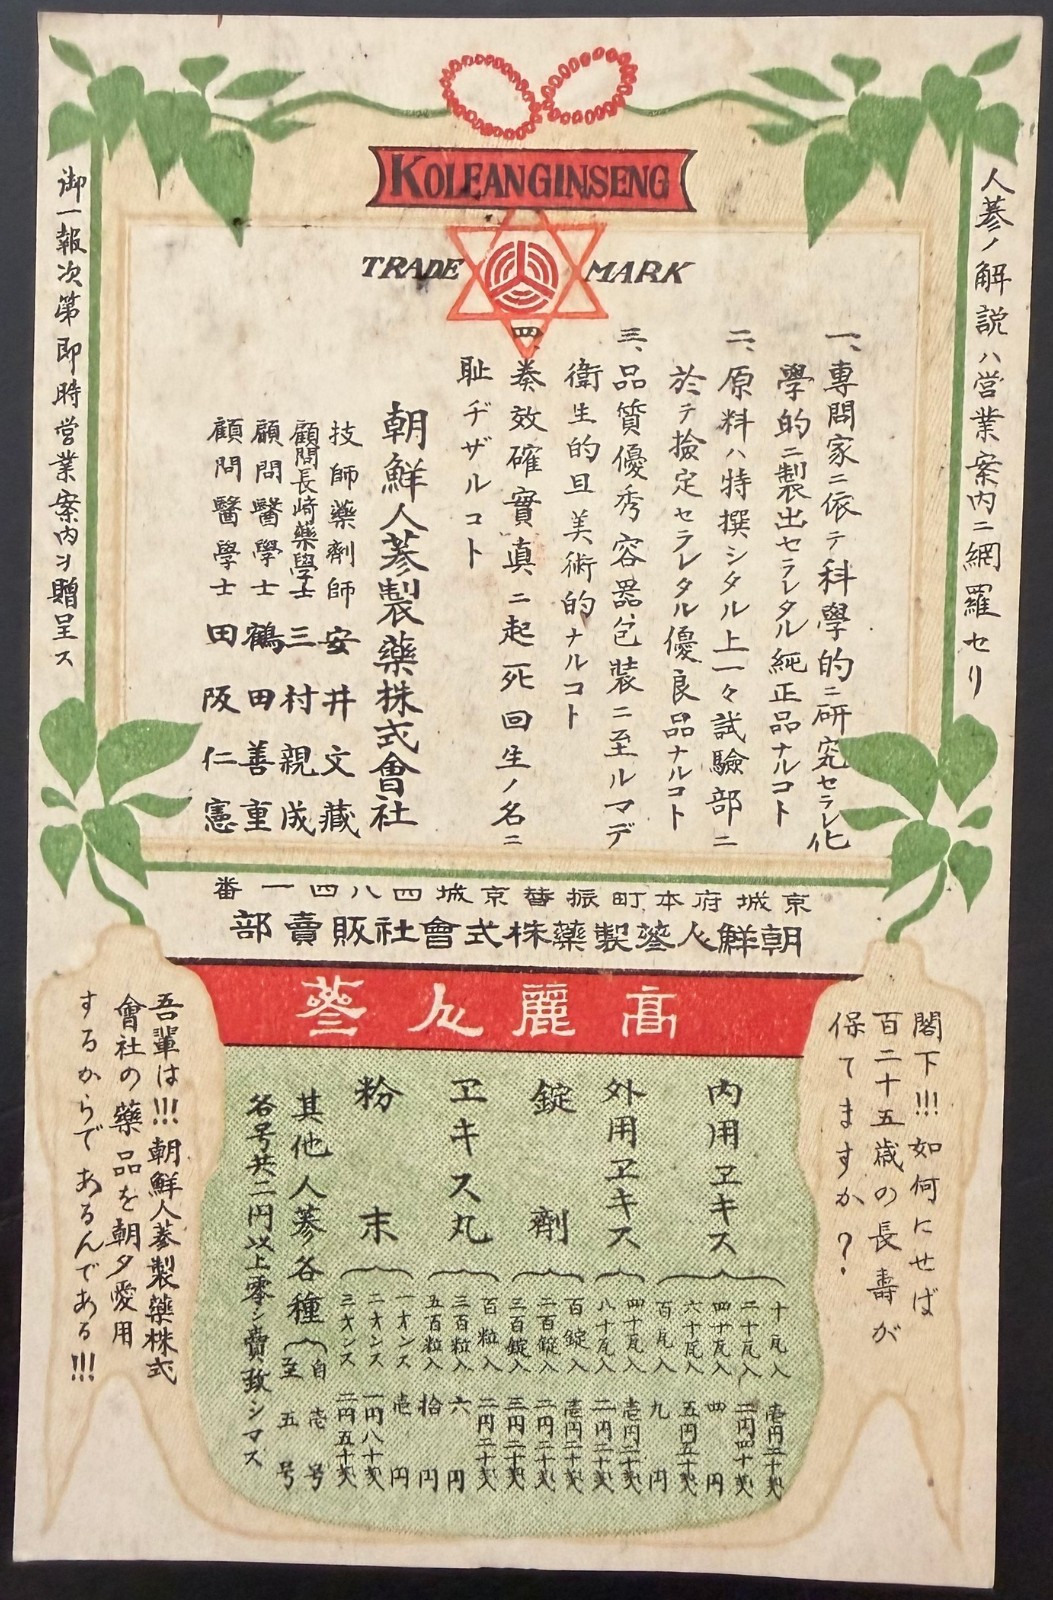 KOLEANGINSENG
TRADE MARK
人蔘ノ解説ハ営業案内ニ網羅セリ
一、專問家ニ依テ科學的ニ研究セラレ化
學的ニ製出セラレタル純正品ナルコト
二、原料ハ特撰シタル上一々試驗部ニ
於テ撿定セラレタル優良品ナルコト
三、品質優秀容器包装ニ至ルマデ
衛生的且美術的ナルコト
四、奏效確實真ニ起死回生ノ名ニ
耻ヂザルコト
朝鮮人蔘製藥株式會社
技師藥劑師 安井文藏
顧問長崎藥學士 三村親成
顧問醫學士 鶴田善重
顧問醫學士 田阪仁憲
御一報次第即時営業案内ヲ贈呈ス
京城府本町振替京城四八四一番
朝鮮人蔘製藥株式會社販賣部
高麗人蔘
閣下!!!如何にせば
百二十五歳の長壽が
保てますか？
内用ヱキス
十瓦入 壱円二十銭
二十瓦入 二円四十銭
四十瓦入 四円
六十瓦入 五円五十銭
百瓦入 九円
外用ヱキス
四十瓦入 壱円二十銭
八十瓦入 二円二十銭
錠劑
百錠入 壱円二十銭
二百錠入 二円二十銭
三百錠入 三円二十銭
ヱキス丸
百粒入 二円二十銭
三百粒入 六円
五百粒入 拾円
粉末
一オンス 壱円
二オンス 一円八十銭
三オンス 二円五十銭
其他人蔘各種 自壱号 至五号
各号共二円以上零シ賣致シマス
吾輩は!!!朝鮮人蔘製藥株式
會社の藥品を朝夕愛用
するからであるんである!!!